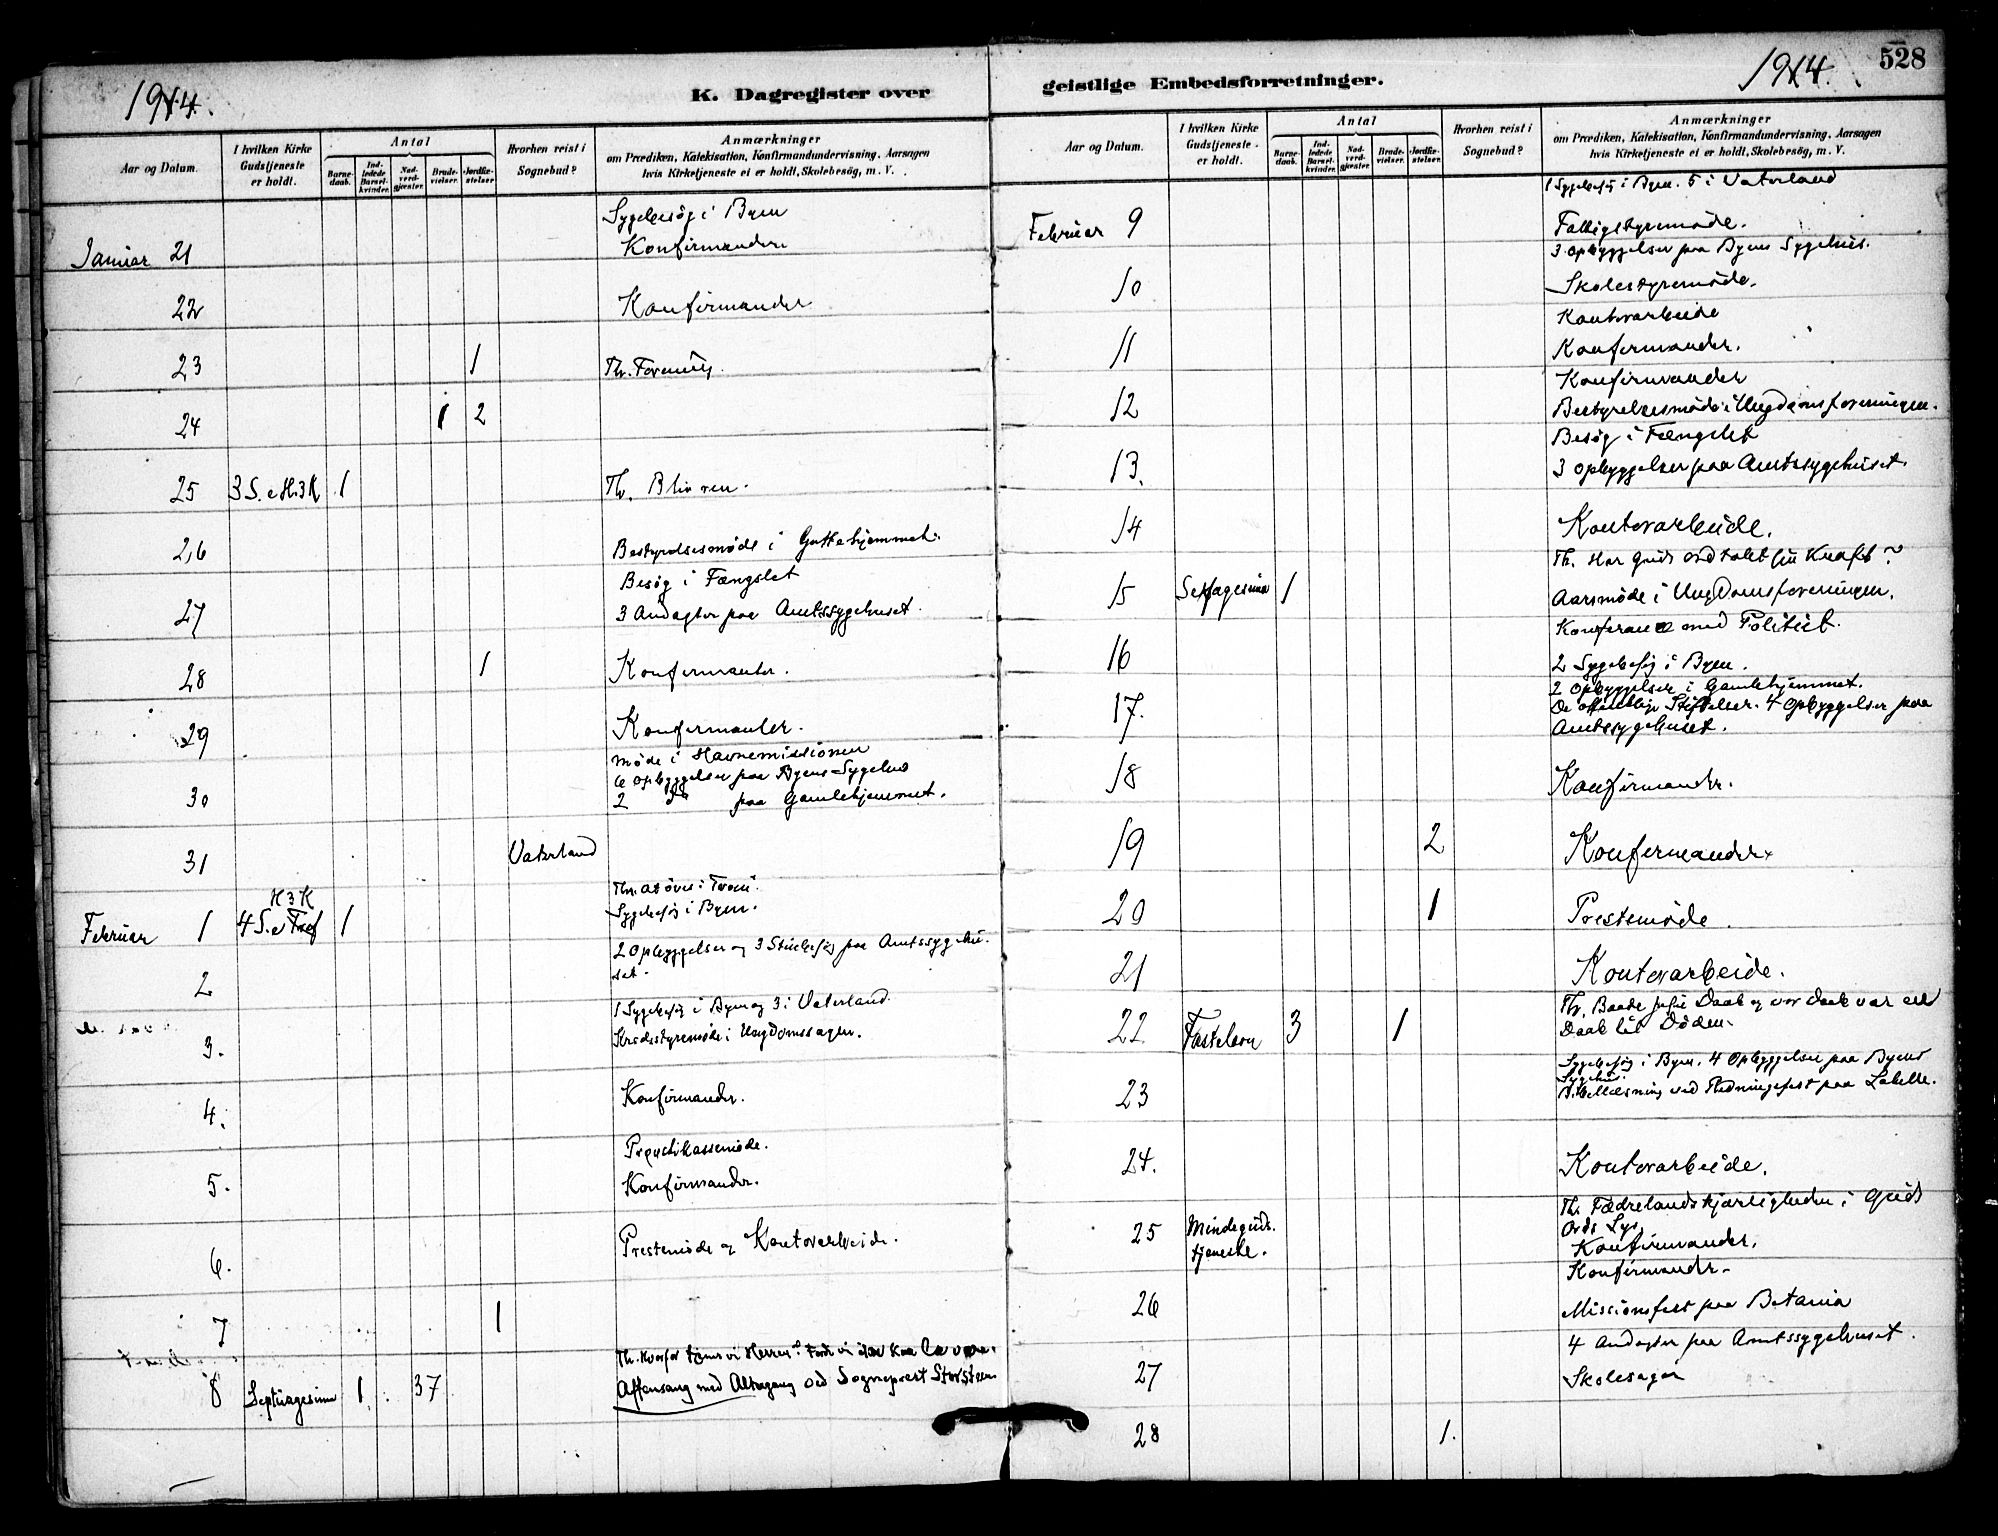 528
1914.
1914.
K. Dagregister over
geistlige Embedsforretninger.
Aar og Datum.
I hvilken Kirke Gudstjeneste er holdt.
Antal
Barnedaab.
Indledede Barselkvinder.
Nadverdgjæster.
Brudevielser.
Jordfæstelser.
Hvorhen reist i Sognebud?
Anmærkninger
om Prædiken, Katekisation, Konfirmandundervisning, Aarsagen
hvis Kirketjeneste ei er holdt, Skolebesøg, m. V.
Sygebesøg i Byen
Januar 21 Konfirmander
22 Konfirmander
23 1 Th.
24 1 2
25 3 S. e H.3K 1 Th.
26 Bestyrelsesmøde i Guttehjemmet.
Besøg i Fængslet
27 3 Andagter paa Amtssygehuset.
28 1 Konfirmander.
29 Konfirmander.
Møde i Havnemissionen
6 Opbyggelser paa Byens Sygehus
30 2 do paa Gamlehjemmet.
31 Vaterland
H 3 K
Sygebesøg i Byen.
Februar 1 4 S. e 1
2 Opbyggelser og 3 paa Amtssygehu-
2 set.
1 Sygebesøg i Byen og 3 i Vaterland.
3. Kredsstyremøde i Ungdomssagen.
4. Konfirmander.
5. Konfirmander.
6. Prestemøde og Kontorarbeide.
7 1
Th. Hvorfor tjener vi Herren?
8 Septuagesima 1 37 Aftensang med Altergang ved Sogneprest
Aar og Datum.
I hvilken Kirke Gudstjeneste er holdt.
Antal
Barnedaab.
Indledede Barselkvinder.
Nadverdgjæster.
Brudevielser.
Jordfæstelser.
Hvorhen reist i Sognebud?
Anmærkninger
om Prædiken, Katekisation, Konfirmandundervisning, Aarsagen
hvis Kirketjeneste ei er holdt, Skolebesøg, m. V.
1 Sygebesøg i Byen. 5 i Vaterland
Februar 9 Fattigstyremøde.
3 Opbyggelser paa Byens Sygehus.
10 Skolestyremøde.
Kontorarbeide
11 Konfirmander.
Konfirmander
12 Bestyrelsesmøde i Ungdomsforeningen.
Besøg i Fængslet
13. 3 Opbyggelser paa Amtssygehuset.
14 Kontorarbeide.
Th. Har Guds ord tabt sin Kraft?
15 Sexagesima 1 Aarsmøde i Ungdomsforeningen.
Konferance med Politiet.
16 2 Sygebesøg i Byen.
2 Opbyggelser i Gamlehjemmet.
17. De offentlige Stiftelser. 4 Opbyggelser paa
Amtssygehuset.
18 Konfirmander.
19 2 Konfirmander.
20 1 Prestemøde.
21 Kontorarbeide.
Th. Baade Jesu Daab og vor daab var en
22 Fastelavn 3 1 Daab til Døden.
Sygebesøg i Byen. 4 Opbyggelser paa Byens
Sygehus.
23 Bibellæsning ved paa
24. Kontorarbeide.
Th. Fædrelandskjærligheden i Guds
25 Mindeguds- Ords Lys
tjeneste. Konfirmander.
Konfirmander.
26 Missionsfest paa Betania
4 Andagter paa Amtssygehuset.
27 Skolesager
28 1.